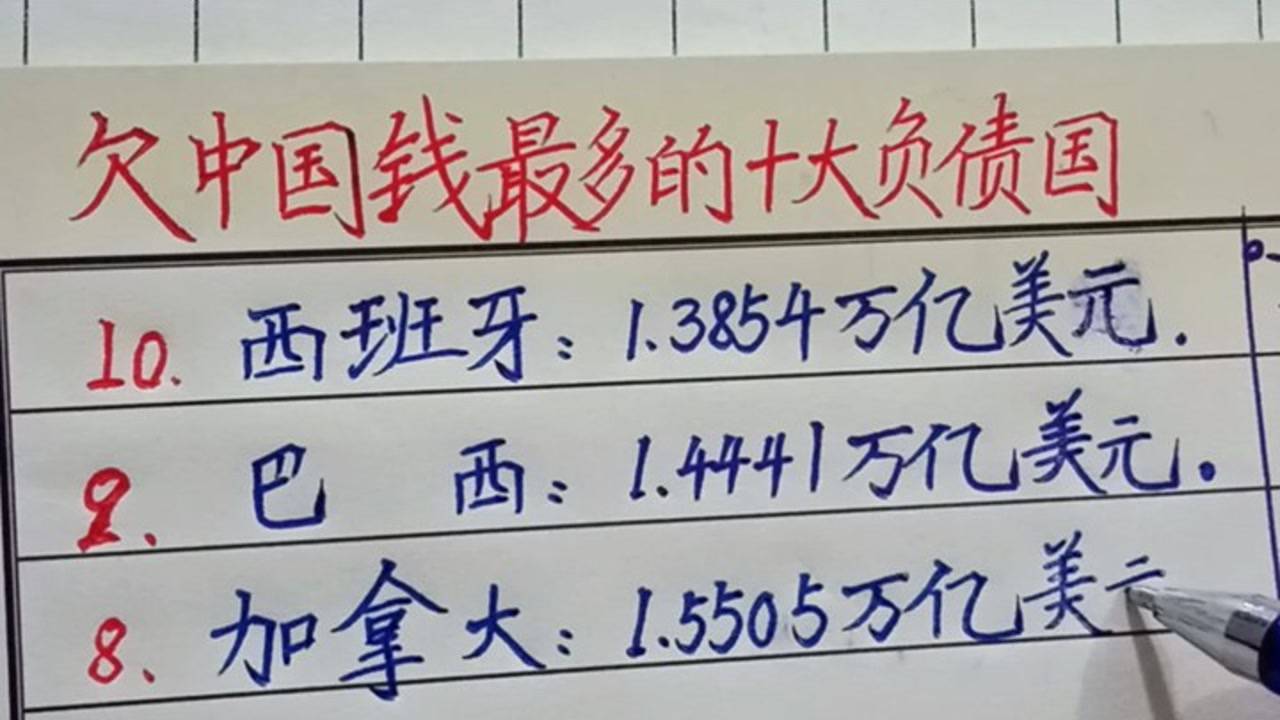 欠中国钱最多的十大负债国
10. 西班牙：1.3854万亿美元.
9. 巴西：1.4441万亿美元.
8. 加拿大：1.5505万亿美